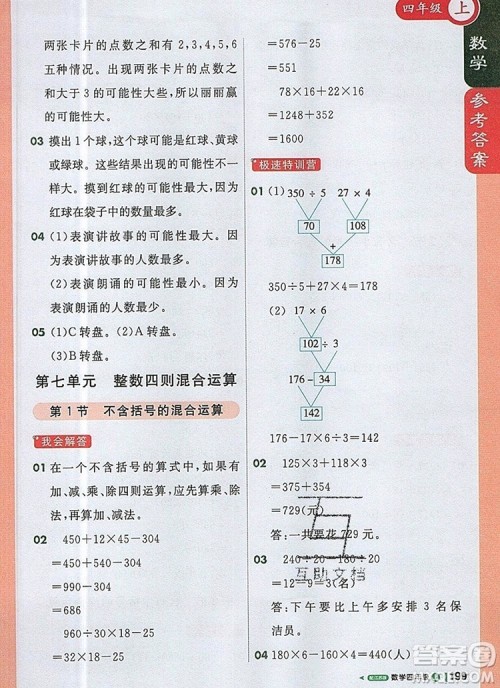 四年级 上
数学
参考答案
两张卡片的点数之和可能有 2,3,4,5,6
五种情况。出现两张卡片的点数之
和大于 3 的可能性大些,所以丽丽赢
的可能性大。
03 摸出 1 个球,这个球可能是红球、黄球
或绿球。这些结果出现的可能性不
相等。摸出红球的可能性最大。因为
红球在袋子中的数量最多。
04 (1)表演讲故事的可能性最大。因
为表演讲故事的人数最多。
(2)表演朗诵的可能性最小。因为
表演朗诵的人数最少。
05 (1)C 转盘。(2)A 转盘。
(3)B 转盘。
第七单元 整数四则混合运算
第 1 节 不含括号的混合运算
我会解答
01 在一个不含括号的算式中,如果有
加、减、乘、除四则运算,应先算乘、除
法,再算加、减法。
02 450+12×45-304
=450+540-304
=990-304
=686
960÷30×18-25
=32×18-25
=576-25
=551
78×16+22×16
=1248+352
=1600
极速特训营
01 (1) 350 ÷ 5 27 × 4
70 108
+
178
350÷5+27×4=178
(2) 17 × 6
102 ÷ 3
176 - 34
142
176-17×6÷3=142
02 125×3+118×3
=375+354
=729(元)
答:一共要花 729 元。
03 240÷20-180÷20
=12-9=3(名)
答:下午要比上午多安排 3 名保
洁员。
04 180×6-160×4=440(人)
互助文档
数学四年级 上 199
答案